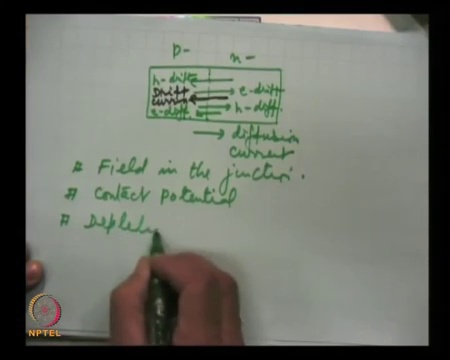 p- n-
h-drift
Drift e-drift
current h-diff.
e-diff.
diffusion
current
# Field in the junction.
# Contact Potential
# Depleti
NPTEL